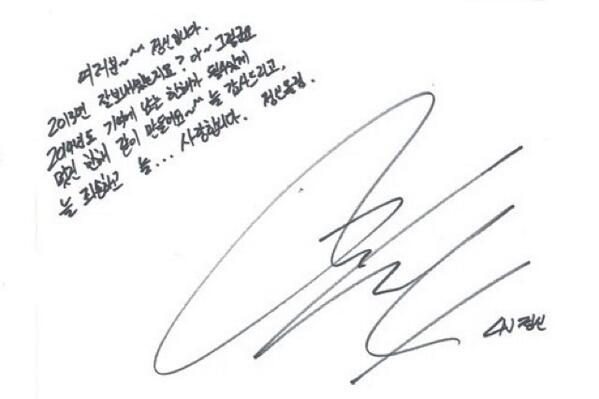 여러분~^^ 정신입니다.
2013년 잘보내셨는지요? 아~ 그렇군요
2014년도 기억에 남는 한해가 될수있게
멋진 한해 같이 만들어요~^^ 늘 감사드리고,
늘 죄송하고 늘... 사랑합니다. 정신올림.
정신